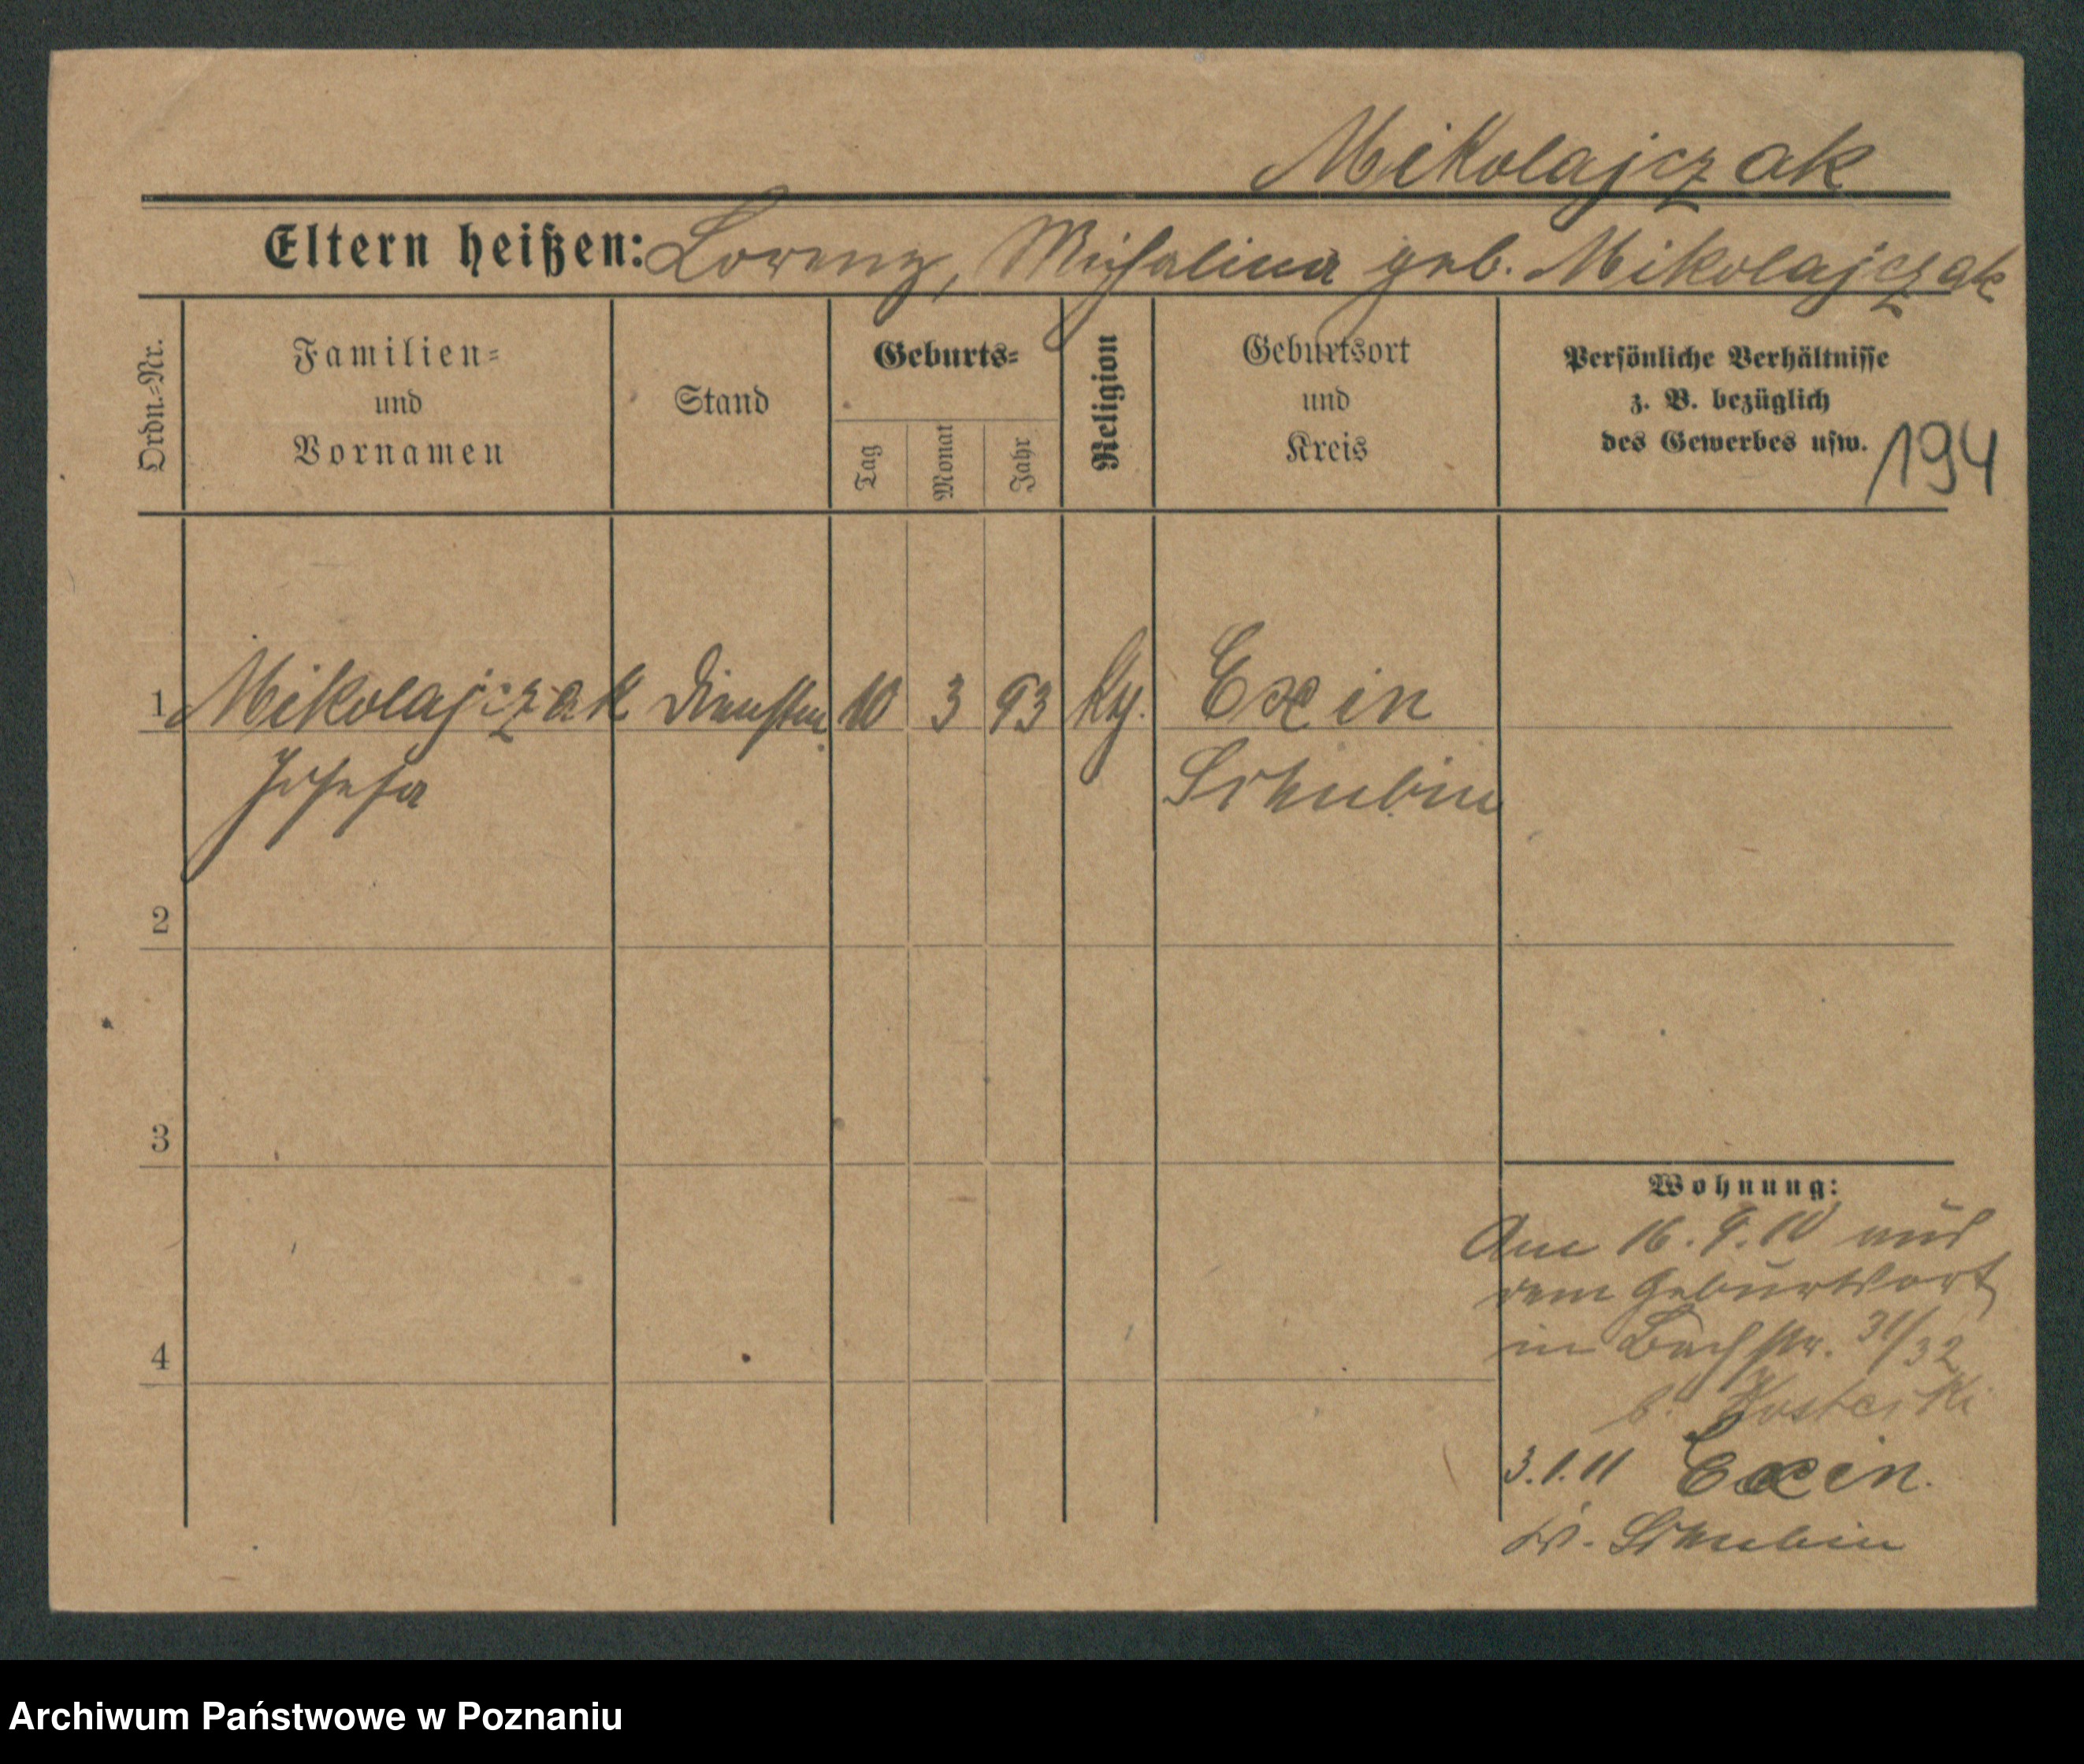 Mikolajczak
Eltern heißen: Lorenz, Michalina geb. Mikolajczak
Ordn.-Nr.
Familien-
und
Vornamen
Stand
Geburts-
Tag
Monat
Jahr
Religion
Geburtsort
und
Kreis
Persönliche Verhältnisse
z. B. bezüglich
des Gewerbes usw.
194
1 Mikolajczak 10 3 93 Exin
Josefa Schubin
2
3
4
Wohnung:
Am 16. 9. 10 aus
dem Geburtsort
in Bachstr. 31/32
b.
3.1.11 Exin.
Kr. Schubin
Archiwum Państwowe w Poznaniu